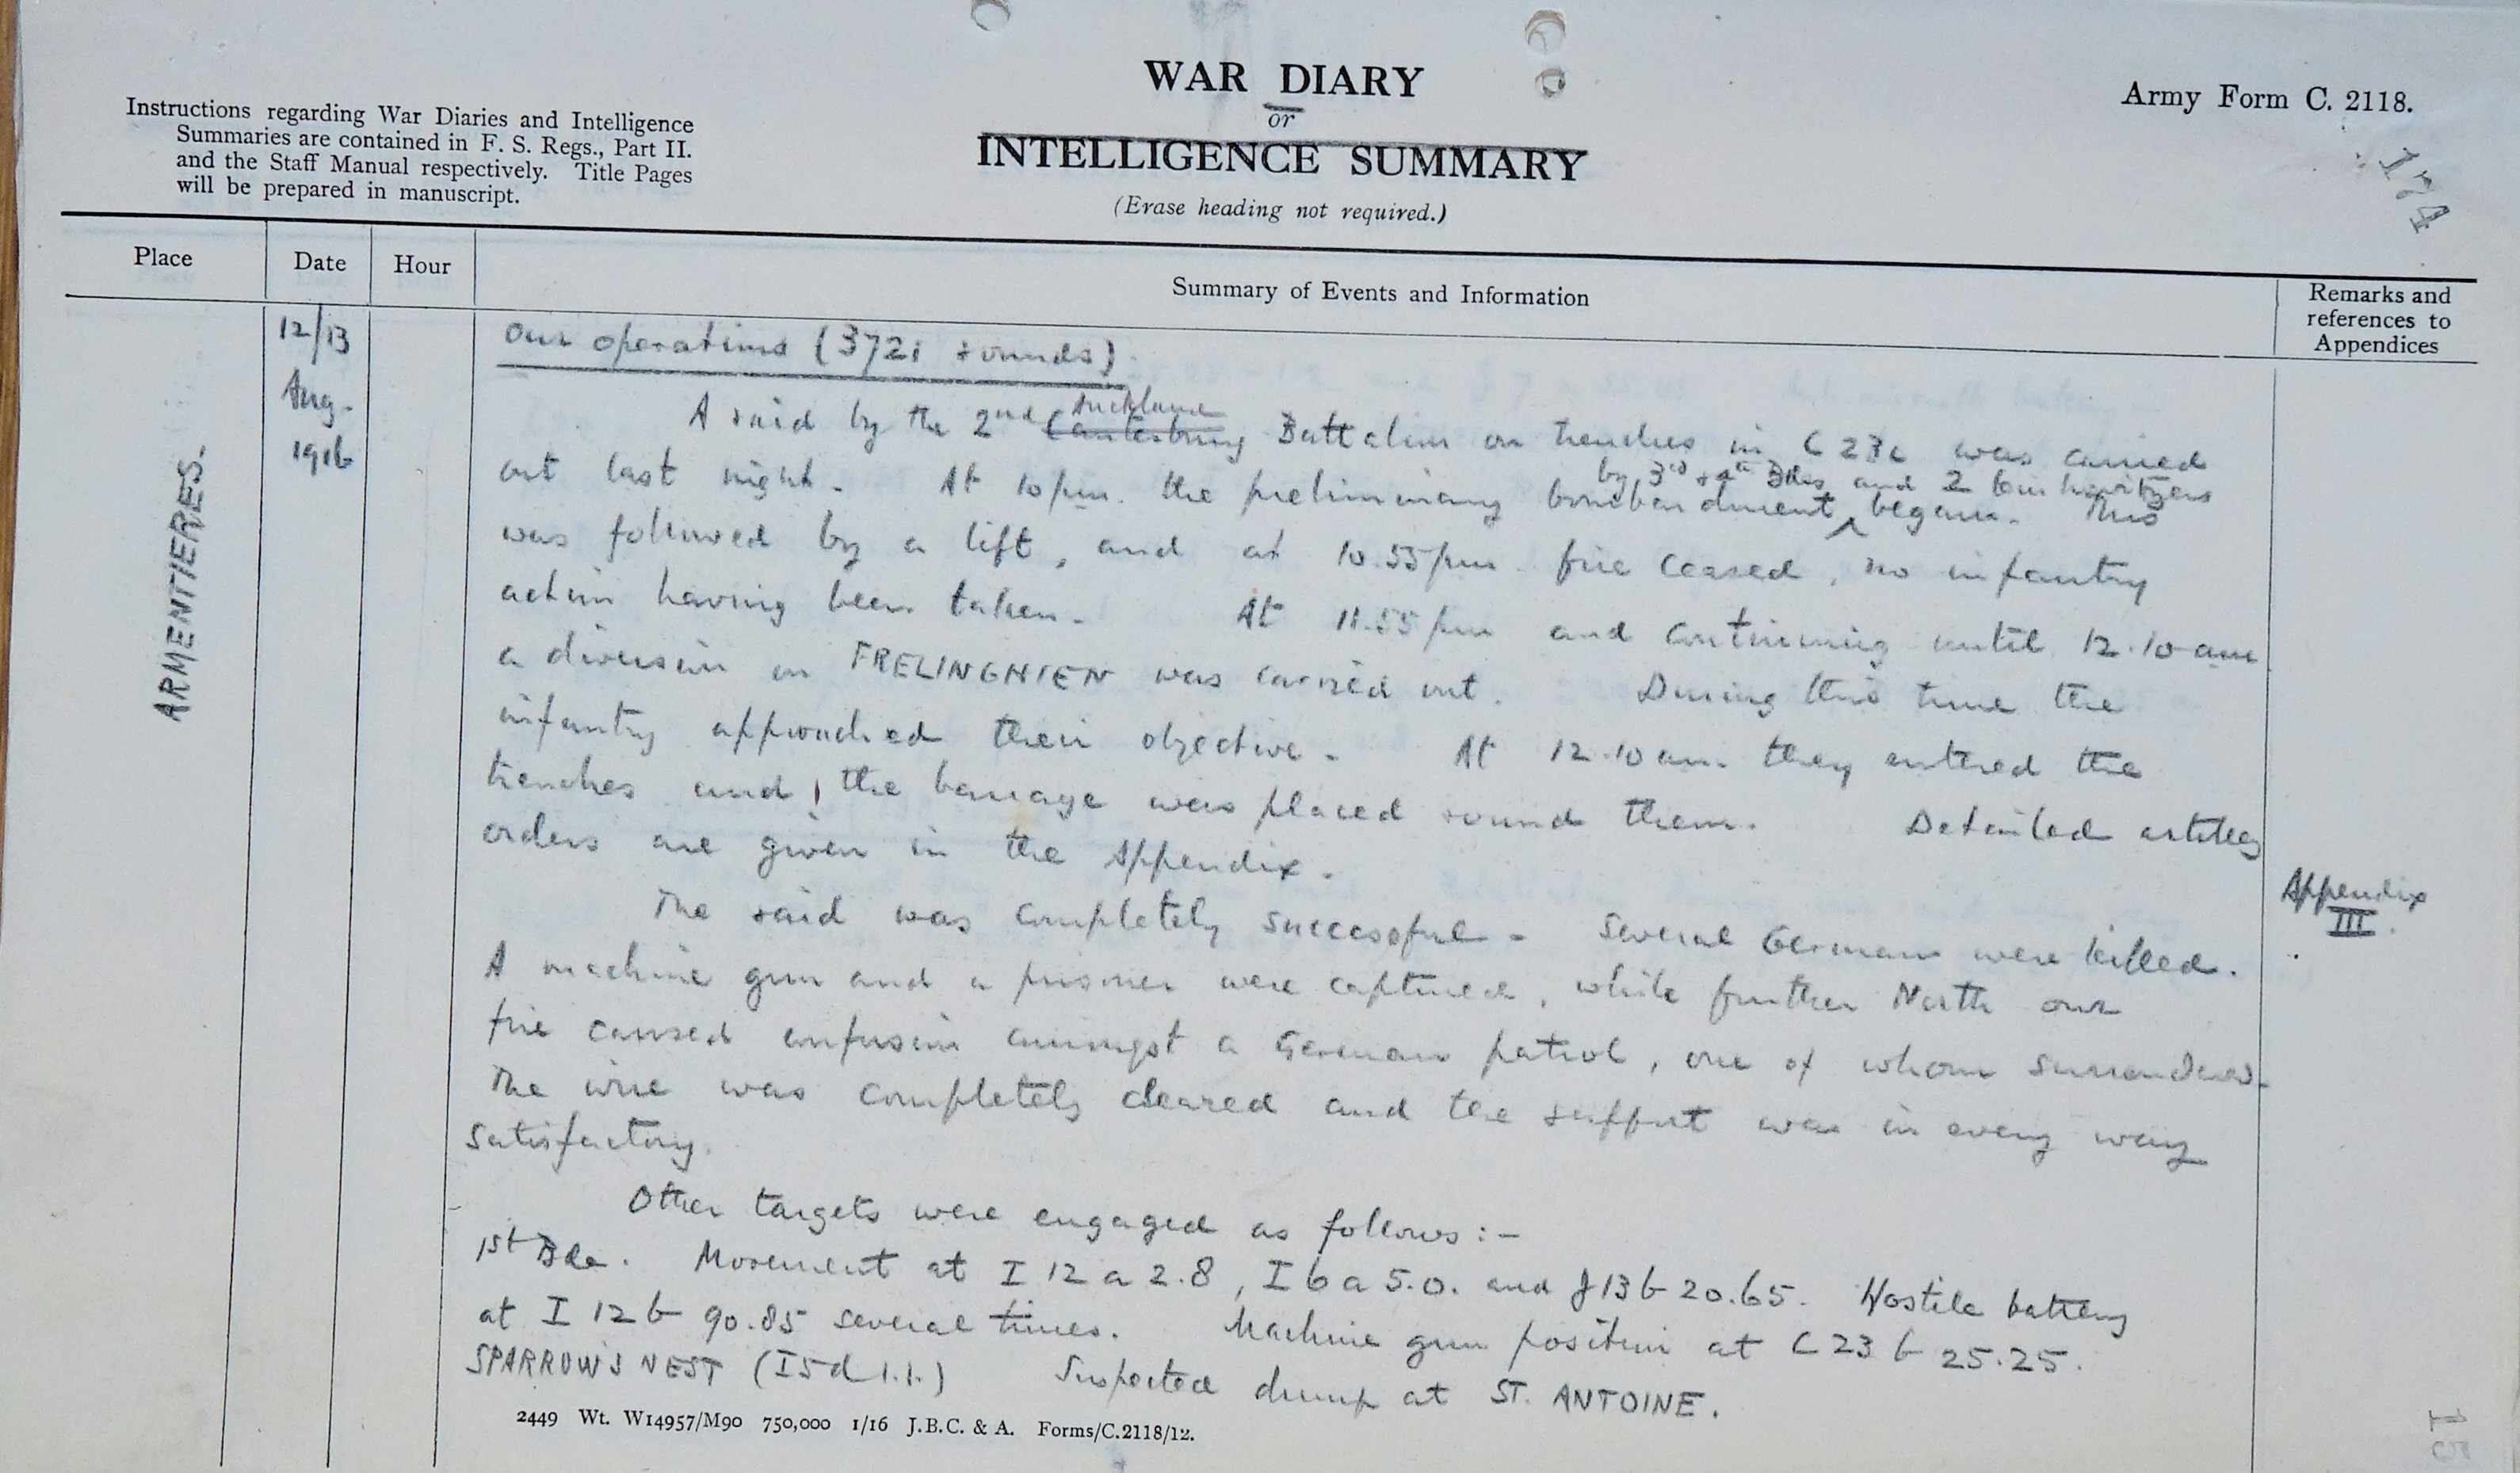 WAR DIARY
or
INTELLIGENCE SUMMARY
(Erase heading not required.)
Army Form C. 2118.
174
Instructions regarding War Diaries and Intelligence
Summaries are contained in F. S. Regs., Part II.
and the Staff Manual respectively. Title Pages
will be prepared in manuscript.
Place
Date
Hour
Summary of Events and Information
Remarks and
references to
Appendices
ARMENTIERES.
12/13
Aug.
1916
Our operations (3721 rounds).
A raid by the 2nd Canterbury Auckland Battalion on trenches in C 23c was carried
out last night. At 10 pm. the preliminary bombardment by 3rd + 4th Bdes and 2 6in howitzers began. This
was followed by a lift, and at 10.55 pm. fire ceased, no infantry
action having been taken. At 11.55 pm and continuing until 12.10 am
a diversion on FRELINGHIEN was carried out. During this time the
infantry approached their objective. At 12.10 am. they entered the
trenches and the barrage was placed round them. Detailed artillery
orders are given in the Appendix.
Appendix
III.
The raid was completely successful. Several Germans were killed.
A machine gun and a prisoner were captured, while further North our
fire caused confusion amongst a German patrol, one of whom surrendered.
The wire was completely cleared and the support was in every way
satisfactory.
Other targets were engaged as follows :-
1st Bde. Movement at I 12 a 2.8, I 6 a 5.0. and J 13 b 20.65. Hostile battery
at I 12 b 90.85 several times. Machine gun position at C 23 b 25.25.
SPARROWS NEST (I 5 d 1.1.) Suspected dump at ST. ANTOINE.
2449 Wt. W14957/M90 750,000 1/16 J.B.C. & A. Forms/C.2118/12.
15